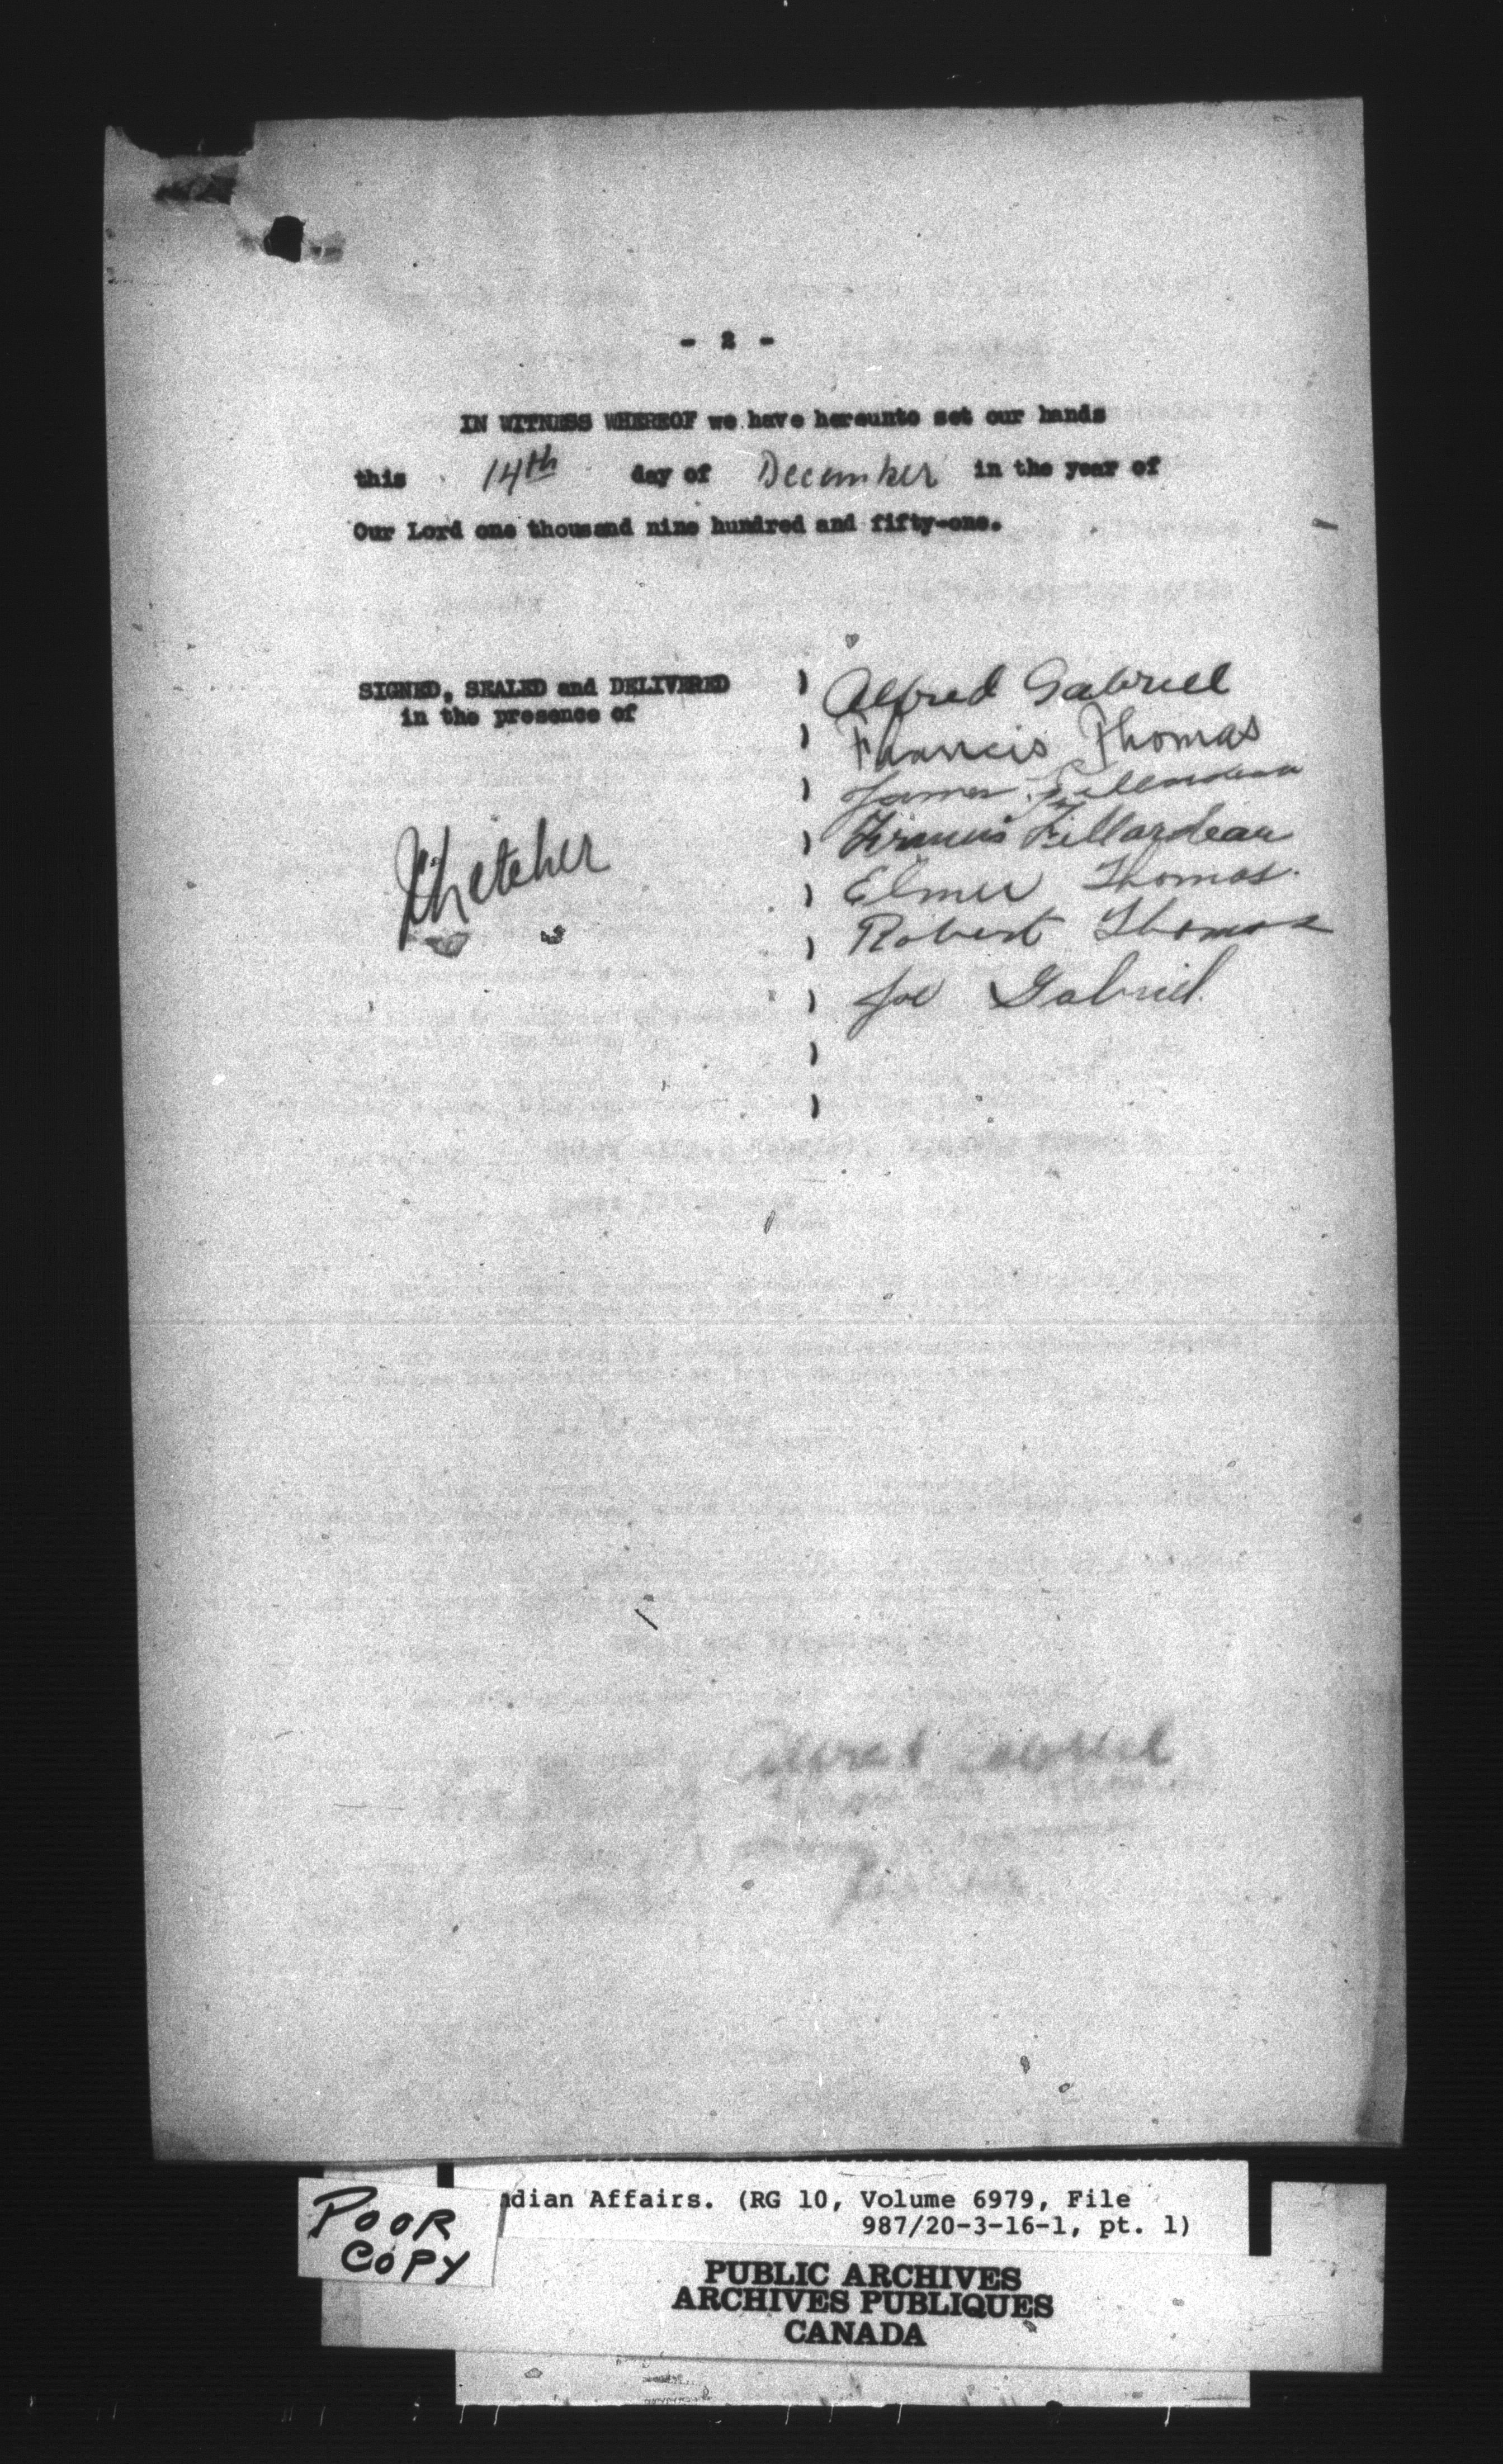 - 2 -
IN WITNESS WHEREOF we have hereunto set our hands
this 14th day of December in the year of
Our Lord one thousand nine hundred and fifty-one.
SIGNED, SEALED and DELIVERED
in the presence of
) Alfred Gabriel
) Francis Thomas
) James Fillardeau
) Francis Fillardeau
) Elmer Thomas.
) Robert Thomas
) Joe Gabriel.
)
)
Alfred Gabriel
POOR
COPY
dian Affairs. (RG 10, Volume 6979, File
987/20-3-16-1, pt. 1)
PUBLIC ARCHIVES
ARCHIVES PUBLIQUES
CANADA